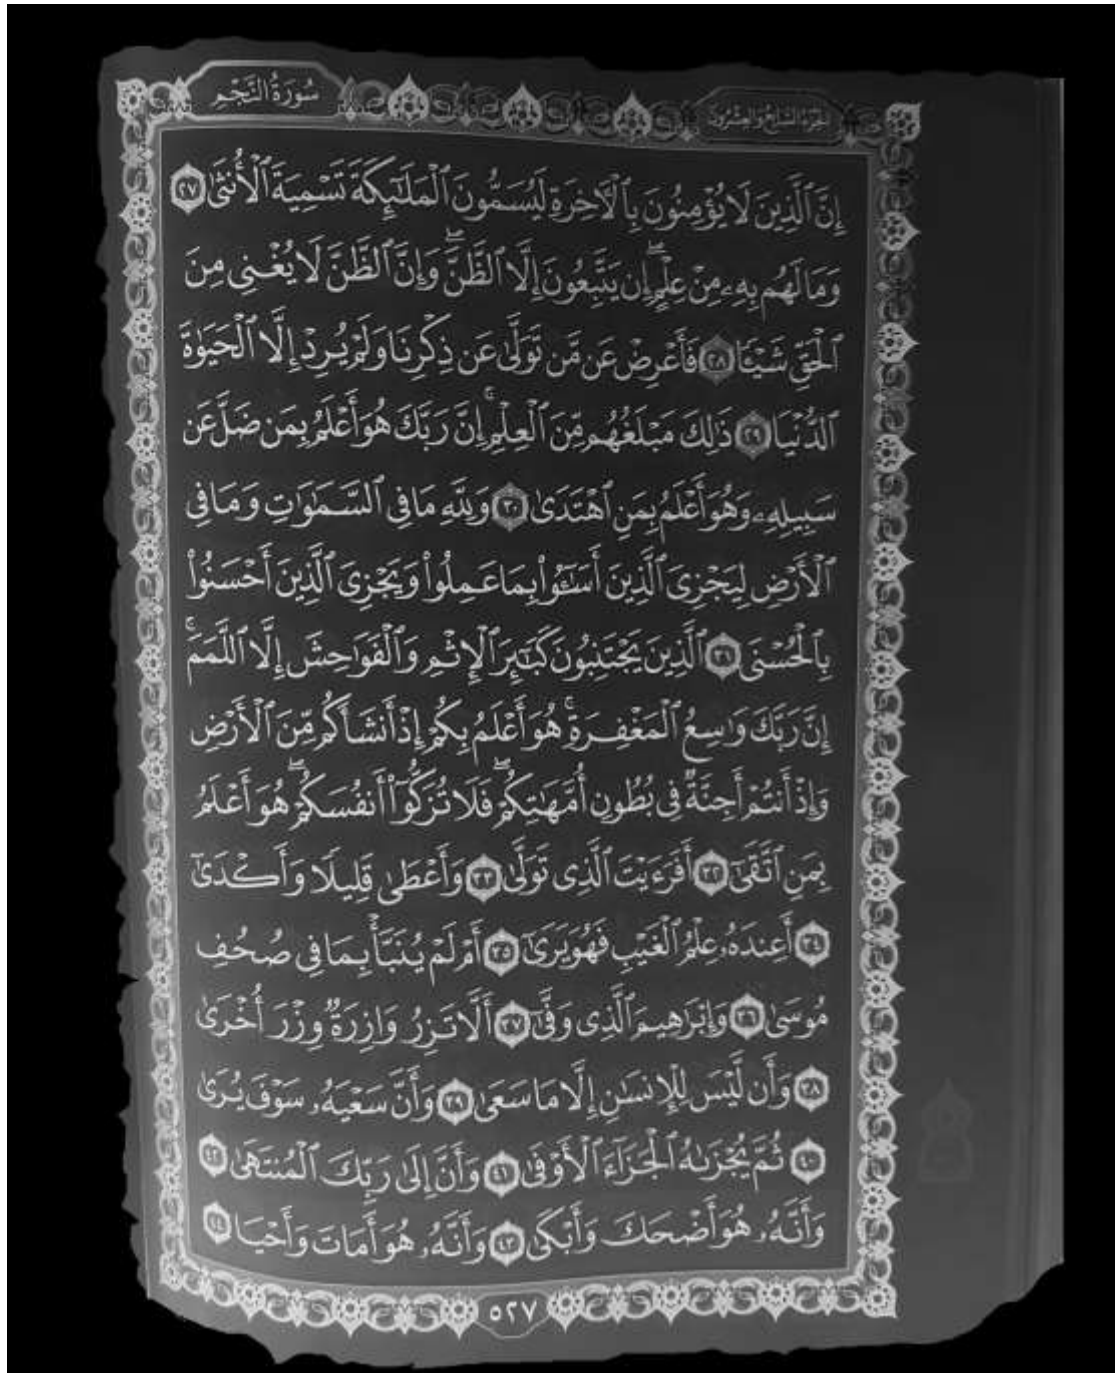 الجزء السابع والعشرون
سُورَةُ النَّجْمِ
إِنَّ ٱلَّذِينَ لَا يُؤْمِنُونَ بِٱلْأَخِرَةِ لَيُسَمُّونَ ٱلْمَلَٰٓئِكَةَ تَسْمِيَةَ ٱلْأُنثَىٰ ٢٧
وَمَا لَهُم بِهِۦ مِنْ عِلْمٍ ۖ إِن يَتَّبِعُونَ إِلَّا ٱلظَّنَّ ۖ وَإِنَّ ٱلظَّنَّ لَا يُغْنِى مِنَ
ٱلْحَقِّ شَيْـًٔا ٢٨ فَأَعْرِضْ عَن مَّن تَوَلَّىٰ عَن ذِكْرِنَا وَلَمْ يُرِدْ إِلَّا ٱلْحَيَوٰةَ
ٱلدُّنْيَا ٢٩ ذَٰلِكَ مَبْلَغُهُم مِّنَ ٱلْعِلْمِ ۚ إِنَّ رَبَّكَ هُوَ أَعْلَمُ بِمَن ضَلَّ عَن
سَبِيلِهِۦ وَهُوَ أَعْلَمُ بِمَنِ ٱهْتَدَىٰ ٣٠ وَلِلَّهِ مَا فِى ٱلسَّمَٰوَٰتِ وَمَا فِى
ٱلْأَرْضِ لِيَجْزِىَ ٱلَّذِينَ أَسَٰٓـُٔوا۟ بِمَا عَمِلُوا۟ وَيَجْزِىَ ٱلَّذِينَ أَحْسَنُوا۟
بِٱلْحُسْنَى ٣١ ٱلَّذِينَ يَجْتَنِبُونَ كَبَٰٓئِرَ ٱلْإِثْمِ وَٱلْفَوَٰحِشَ إِلَّا ٱللَّمَمَ ۚ
إِنَّ رَبَّكَ وَٰسِعُ ٱلْمَغْفِرَةِ ۚ هُوَ أَعْلَمُ بِكُمْ إِذْ أَنشَأَكُم مِّنَ ٱلْأَرْضِ
وَإِذْ أَنتُمْ أَجِنَّةٌ فِى بُطُونِ أُمَّهَٰتِكُمْ ۖ فَلَا تُزَكُّوٓا۟ أَنفُسَكُمْ ۖ هُوَ أَعْلَمُ
بِمَنِ ٱتَّقَىٰٓ ٣٢ أَفَرَءَيْتَ ٱلَّذِى تَوَلَّىٰ ٣٣ وَأَعْطَىٰ قَلِيلًا وَأَكْدَىٰٓ
٣٤ أَعِندَهُۥ عِلْمُ ٱلْغَيْبِ فَهُوَ يَرَىٰٓ ٣٥ أَمْ لَمْ يُنَبَّأْ بِمَا فِى صُحُفِ
مُوسَىٰ ٣٦ وَإِبْرَٰهِيمَ ٱلَّذِى وَفَّىٰٓ ٣٧ أَلَّا تَزِرُ وَازِرَةٌ وِزْرَ أُخْرَىٰ
٣٨ وَأَن لَّيْسَ لِلْإِنسَٰنِ إِلَّا مَا سَعَىٰ ٣٩ وَأَنَّ سَعْيَهُۥ سَوْفَ يُرَىٰ
٤٠ ثُمَّ يُجْزَىٰهُ ٱلْجَزَآءَ ٱلْأَوْفَىٰ ٤١ وَأَنَّ إِلَىٰ رَبِّكَ ٱلْمُنتَهَىٰ ٤٢
وَأَنَّهُۥ هُوَ أَضْحَكَ وَأَبْكَىٰ ٤٣ وَأَنَّهُۥ هُوَ أَمَاتَ وَأَحْيَا ٤٤
٥٢٧